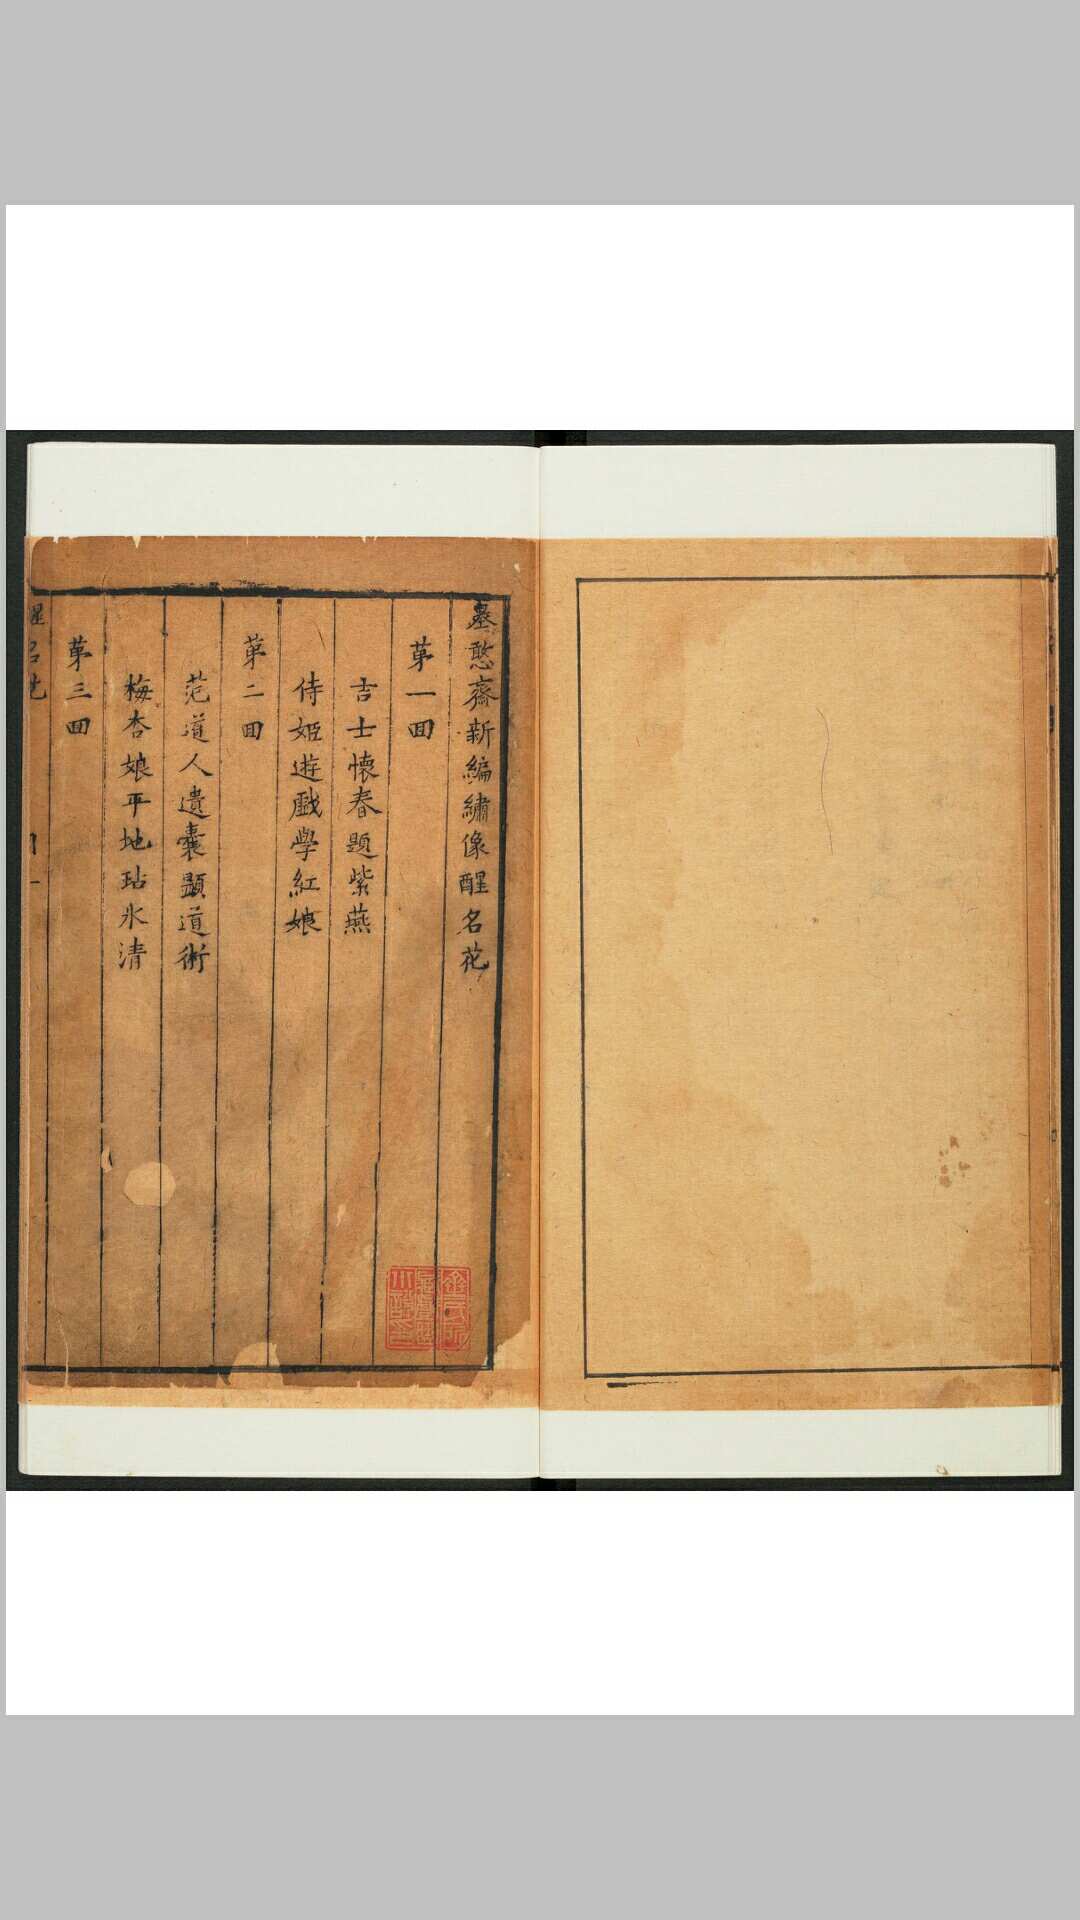 墨憨齋新編繡像醒名花
第一囬
吉士懷春題紫燕
侍姬遊戲學紅娘
第二囬
范道人遺囊顯道術
梅杏娘平地玷氷清
第三囬
醒名花